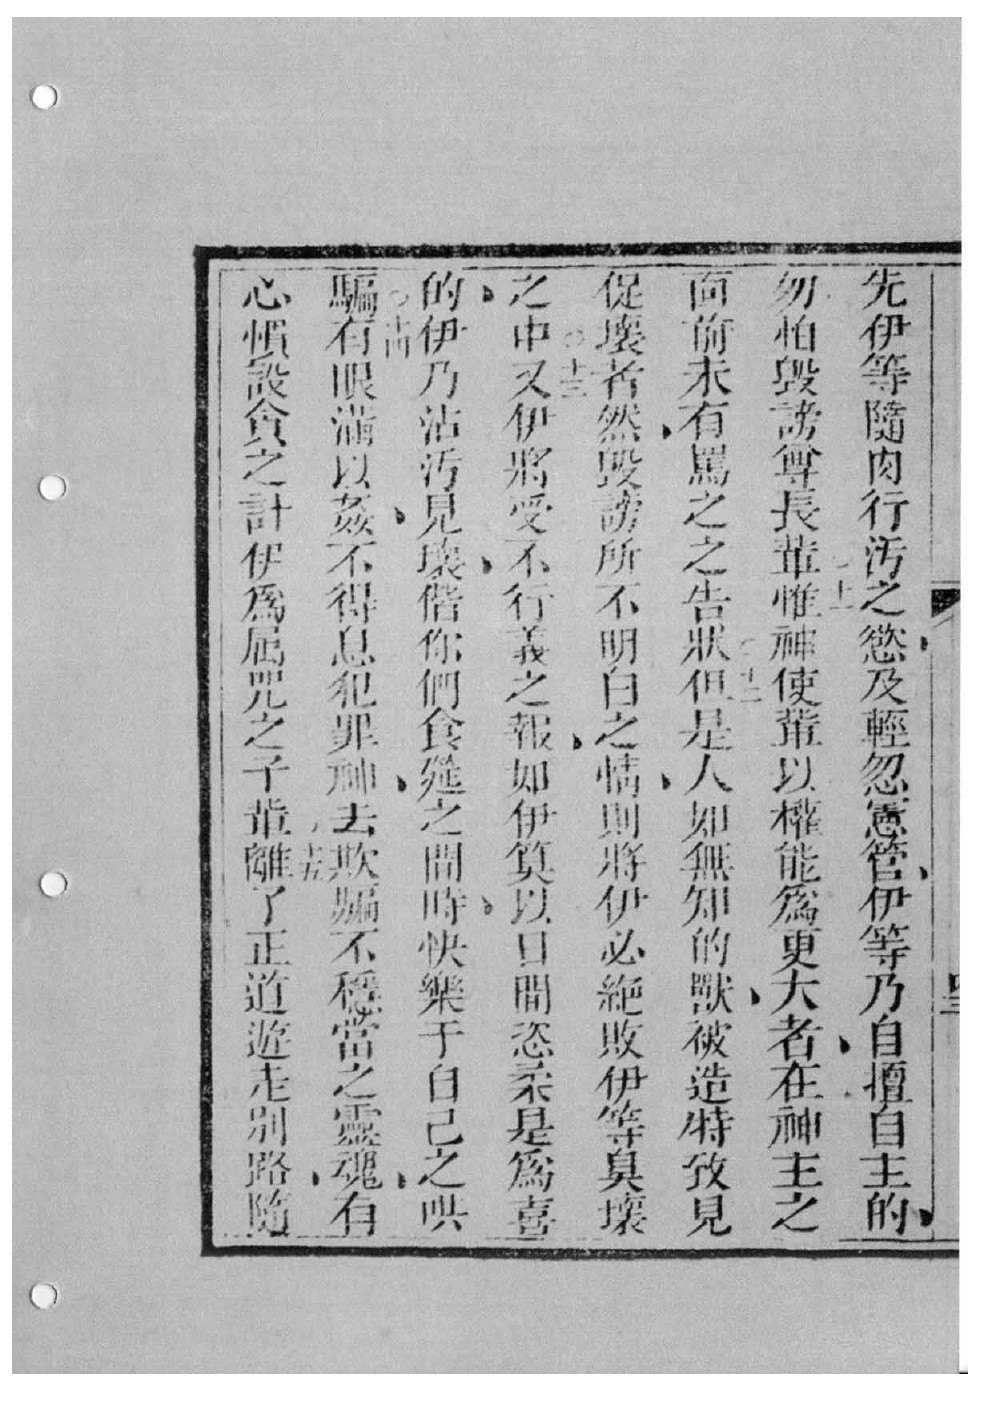 先伊等隨肉行汚之慾及輕忽憲管伊等乃自擅自主的
勿怕毀謗尊長輩十一惟神使輩以權能爲更大者在神主之
面前未有罵之之告狀十二但是人如無知的獸被造特攻見
促壞者然毀謗所不明白之情則將伊必絕敗伊等臭壞
之中十三又伊將受不行義之報如伊算以日間恣柔是爲喜
的伊乃沾汚見壞偕你們食筵之間時快樂于自己之哄
騙十四有眼滿以姦不得息犯罪神去欺騙不穩當之靈魂有
心慣設貪之計伊爲屬咒之子輩十五離了正道遊走別路隨